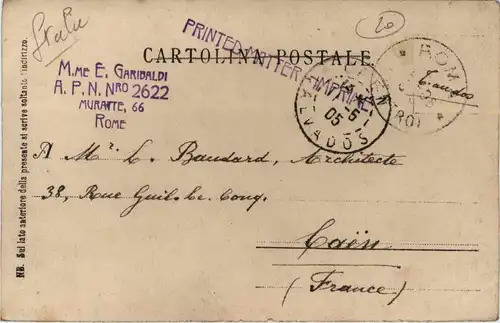 Italie
20
PRINTED MATTER - IMPRIMÉ
CARTOLINA POSTALE
MME E. GARIBALDI
A. P. N. NRO 2622
MURATTE, 66
ROME
ROMA
CENTRO
5
05
CALVADOS
A Mr. L. Baudard, Architecte
38, Rue Guil. le Conq.
Caën
(France)
NB. Sul lato anteriore della presente si scrive soltanto l'indirizzo.